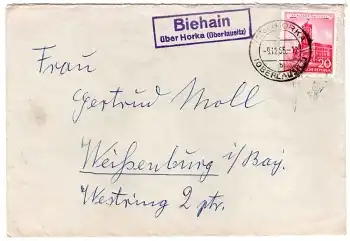 Biehain
über Horka (Oberlausitz)
HORKA
-9.12.55.-
(OBERLAUSITZ)
20
Frau
Gertrud Moll
Weißenburg i/Bay.
Westring 2 ptr.